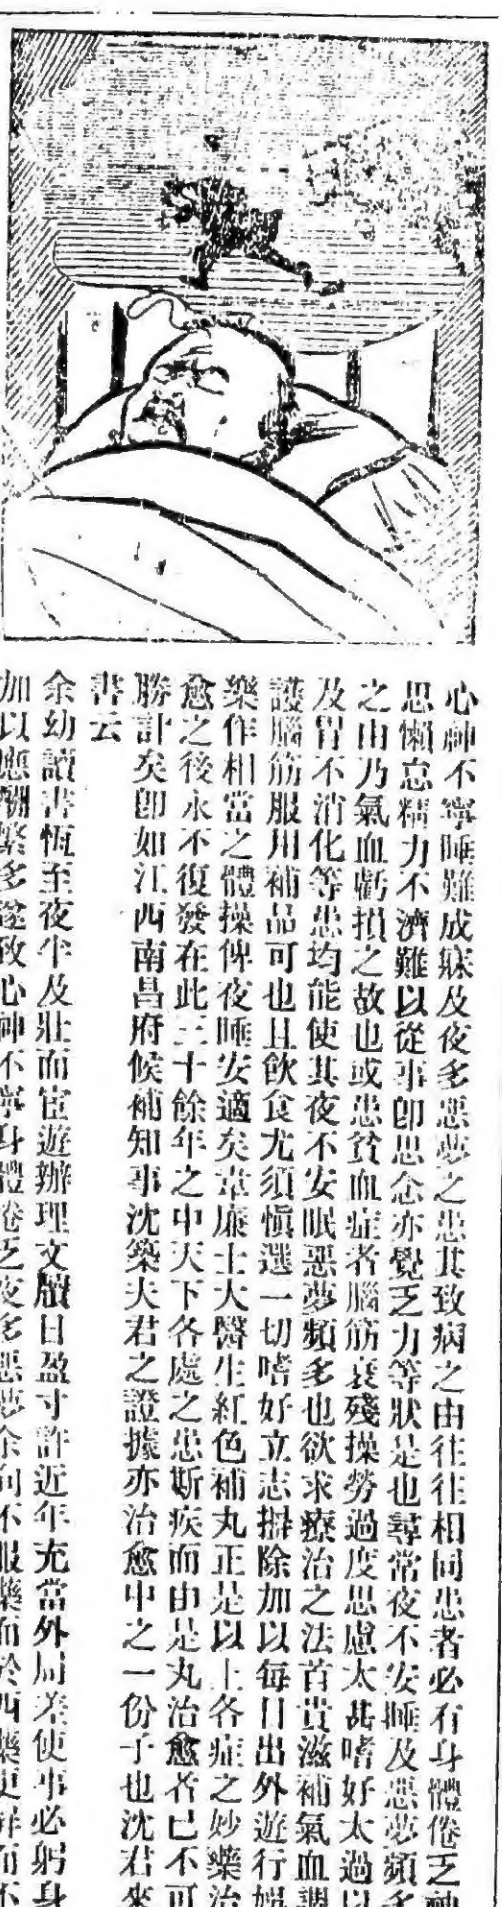 心神不寧睡難成寐及夜多惡夢之患其致病之由往往相同患者必有身體倦乏神
思懶怠精力不濟難以從事卽思念亦覺乏力等狀是也尋常夜不安睡及惡夢頻多
之由乃氣血虧損之故也或患貧血症者腦筋衰殘操勞過度思慮太甚嗜好太過以
及胃不消化等患均能使其夜不安眠惡夢頻多也欲求療治之法首貴滋補氣血調
護腦筋服用補品可也且飮食尤須愼選一切嗜好立志摒除加以每日出外遊行娛
樂作相當之體操俾夜睡安適矣韋廉士大醫生紅色補丸正是以上各症之妙藥治
愈之後永不復發在此三十餘年之中天下各處之患斯疾而由是丸治愈者已不可
勝計矣卽如江西南昌府候補知事沈築夫君之證據亦治愈中之一份子也沈君來
書云
余幼讀書恆至夜半及壯而宦遊辦理文牘日盈寸許近年充當外局差使事必躬身
加以應酬繁多遂致心神不寧身體倦乏夜多惡夢余向不服藥而於西藥更